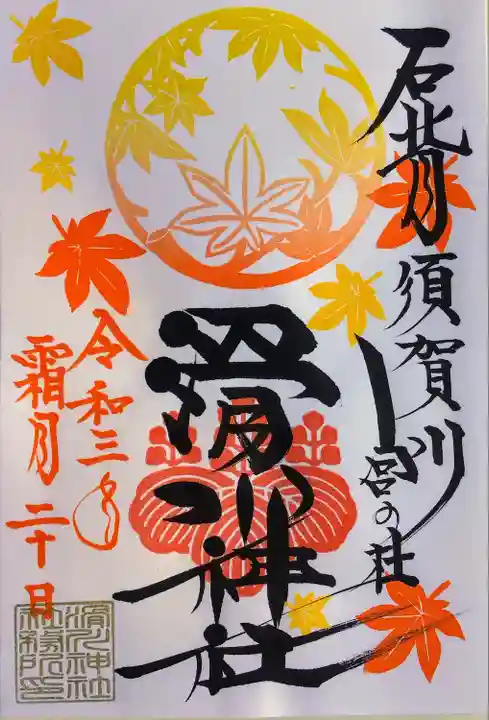 石背須賀川
滑川神社
令和三年
霜月二十日
滑川神社
社務所印